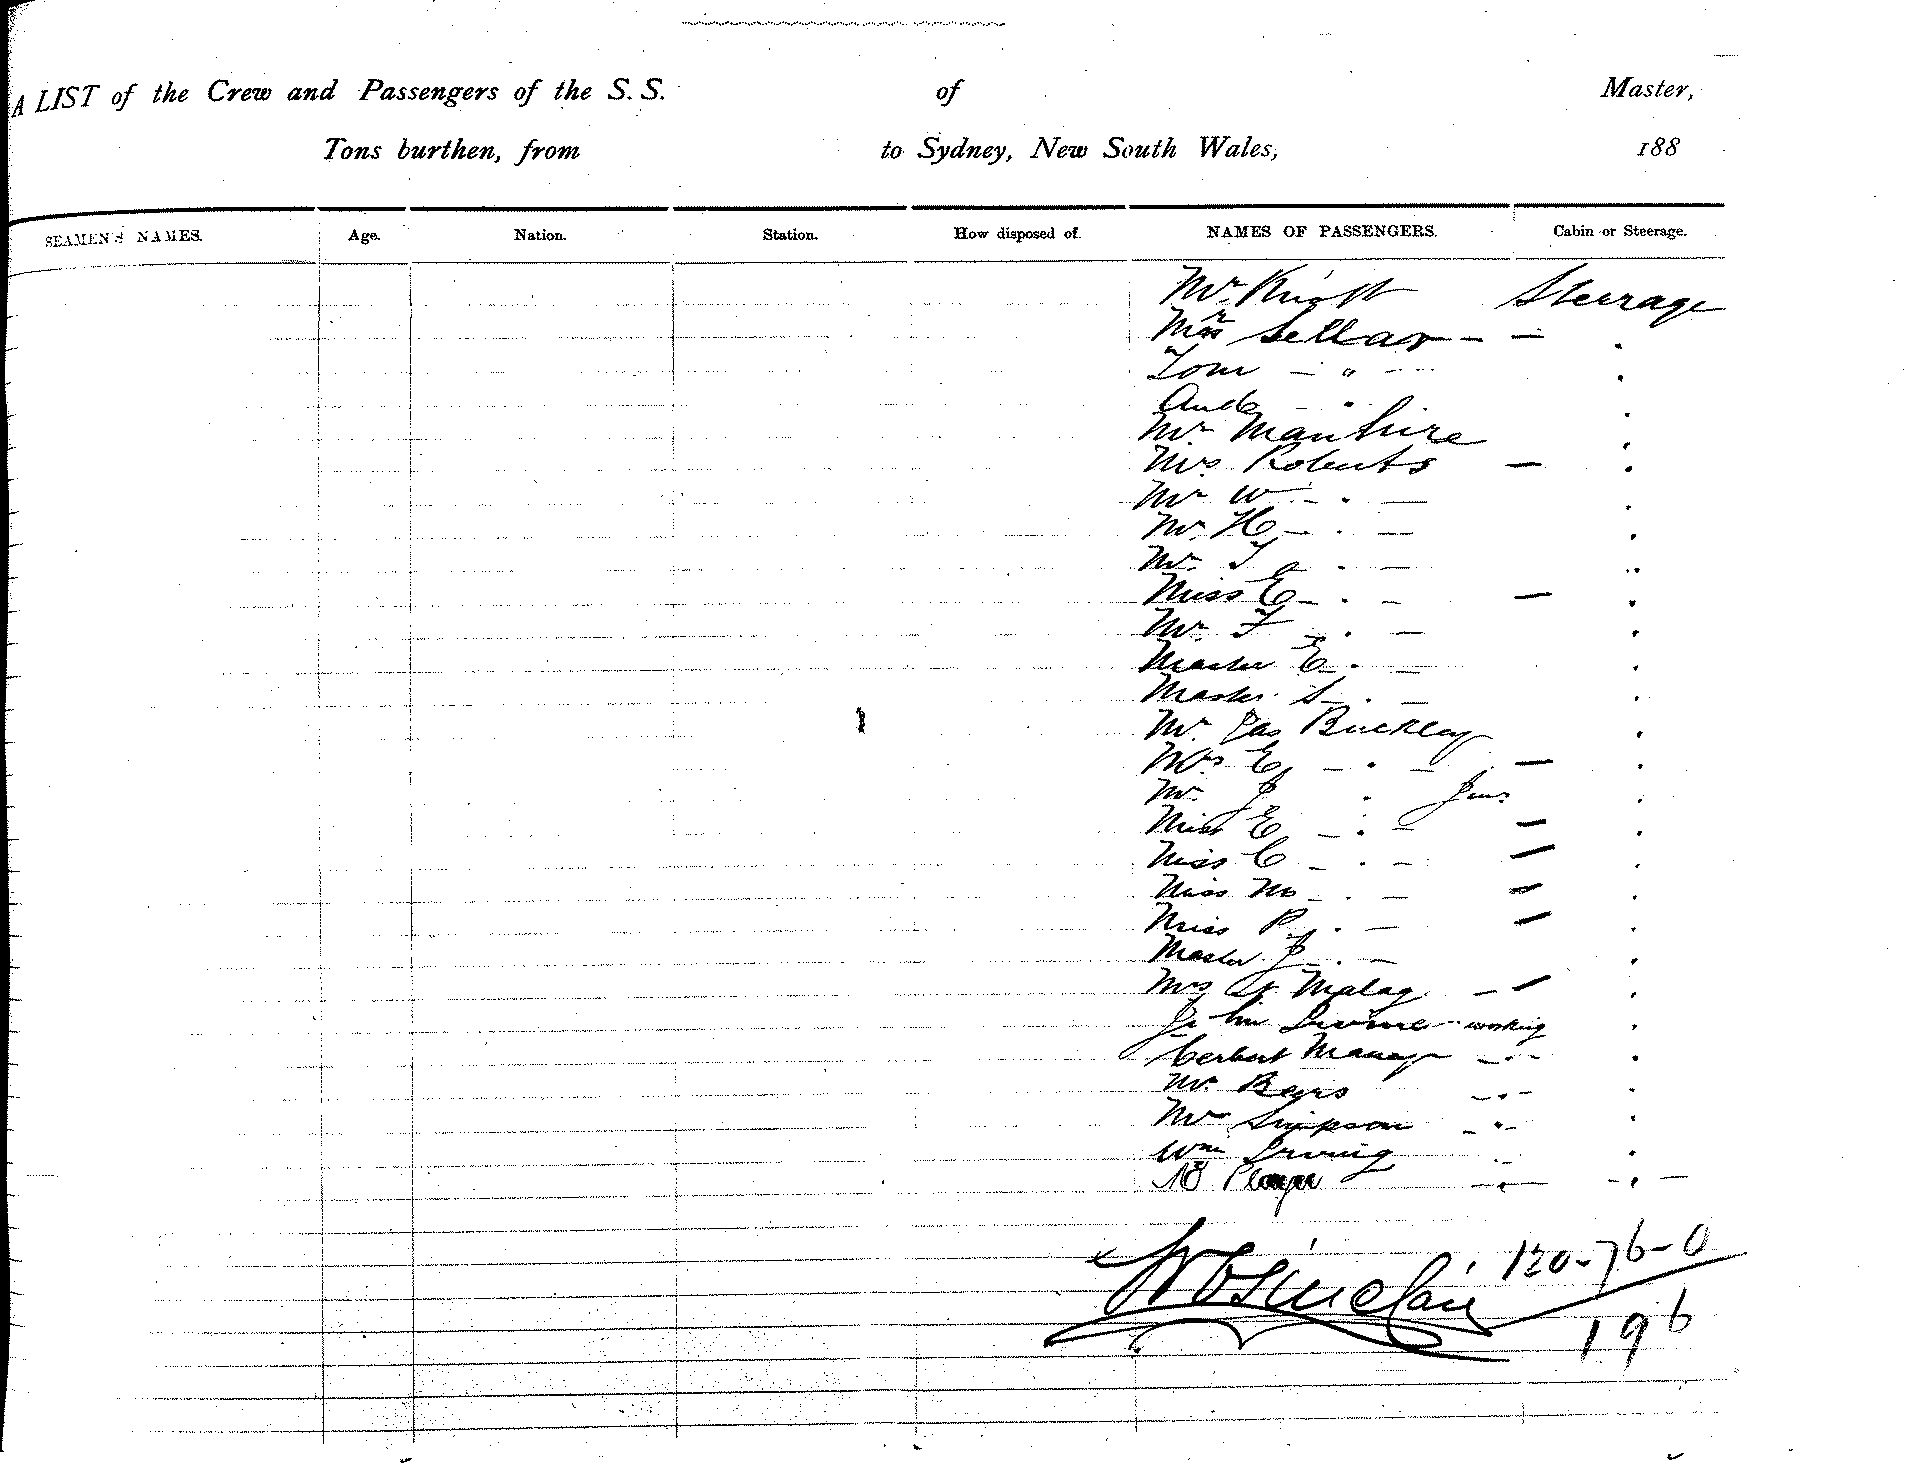 A LIST of the Crew and Passengers of the S. S. of Master,
Tons burthen, from to Sydney, New South Wales, 188
SEAMEN'S NAMES. Age. Nation. Station. How disposed of. NAMES OF PASSENGERS. Cabin or Steerage.
Mr. Knight Steerage
Sellar - - "
Tom - " - "
- " "
Mr Manhire "
Mrs Roberts - "
Mr W - " - "
Mr. H - " - "
Mr. T " - "
Miss E - " - - "
Mr. F - " - "
Master E - " - "
Master S - " - "
Mr. Jas Buckley "
Mrs E - " - - "
Mr. J " Junr "
Miss E - " - - "
Miss C - " - - "
Miss M - " - - "
Miss P - " - - "
Master J - " - "
Mrs - - "
John working "
- " - "
Mr. - " - "
Mr Simpson - " - "
Wm Irving " "
- " - - " -
Sinclair 120-76-0
196